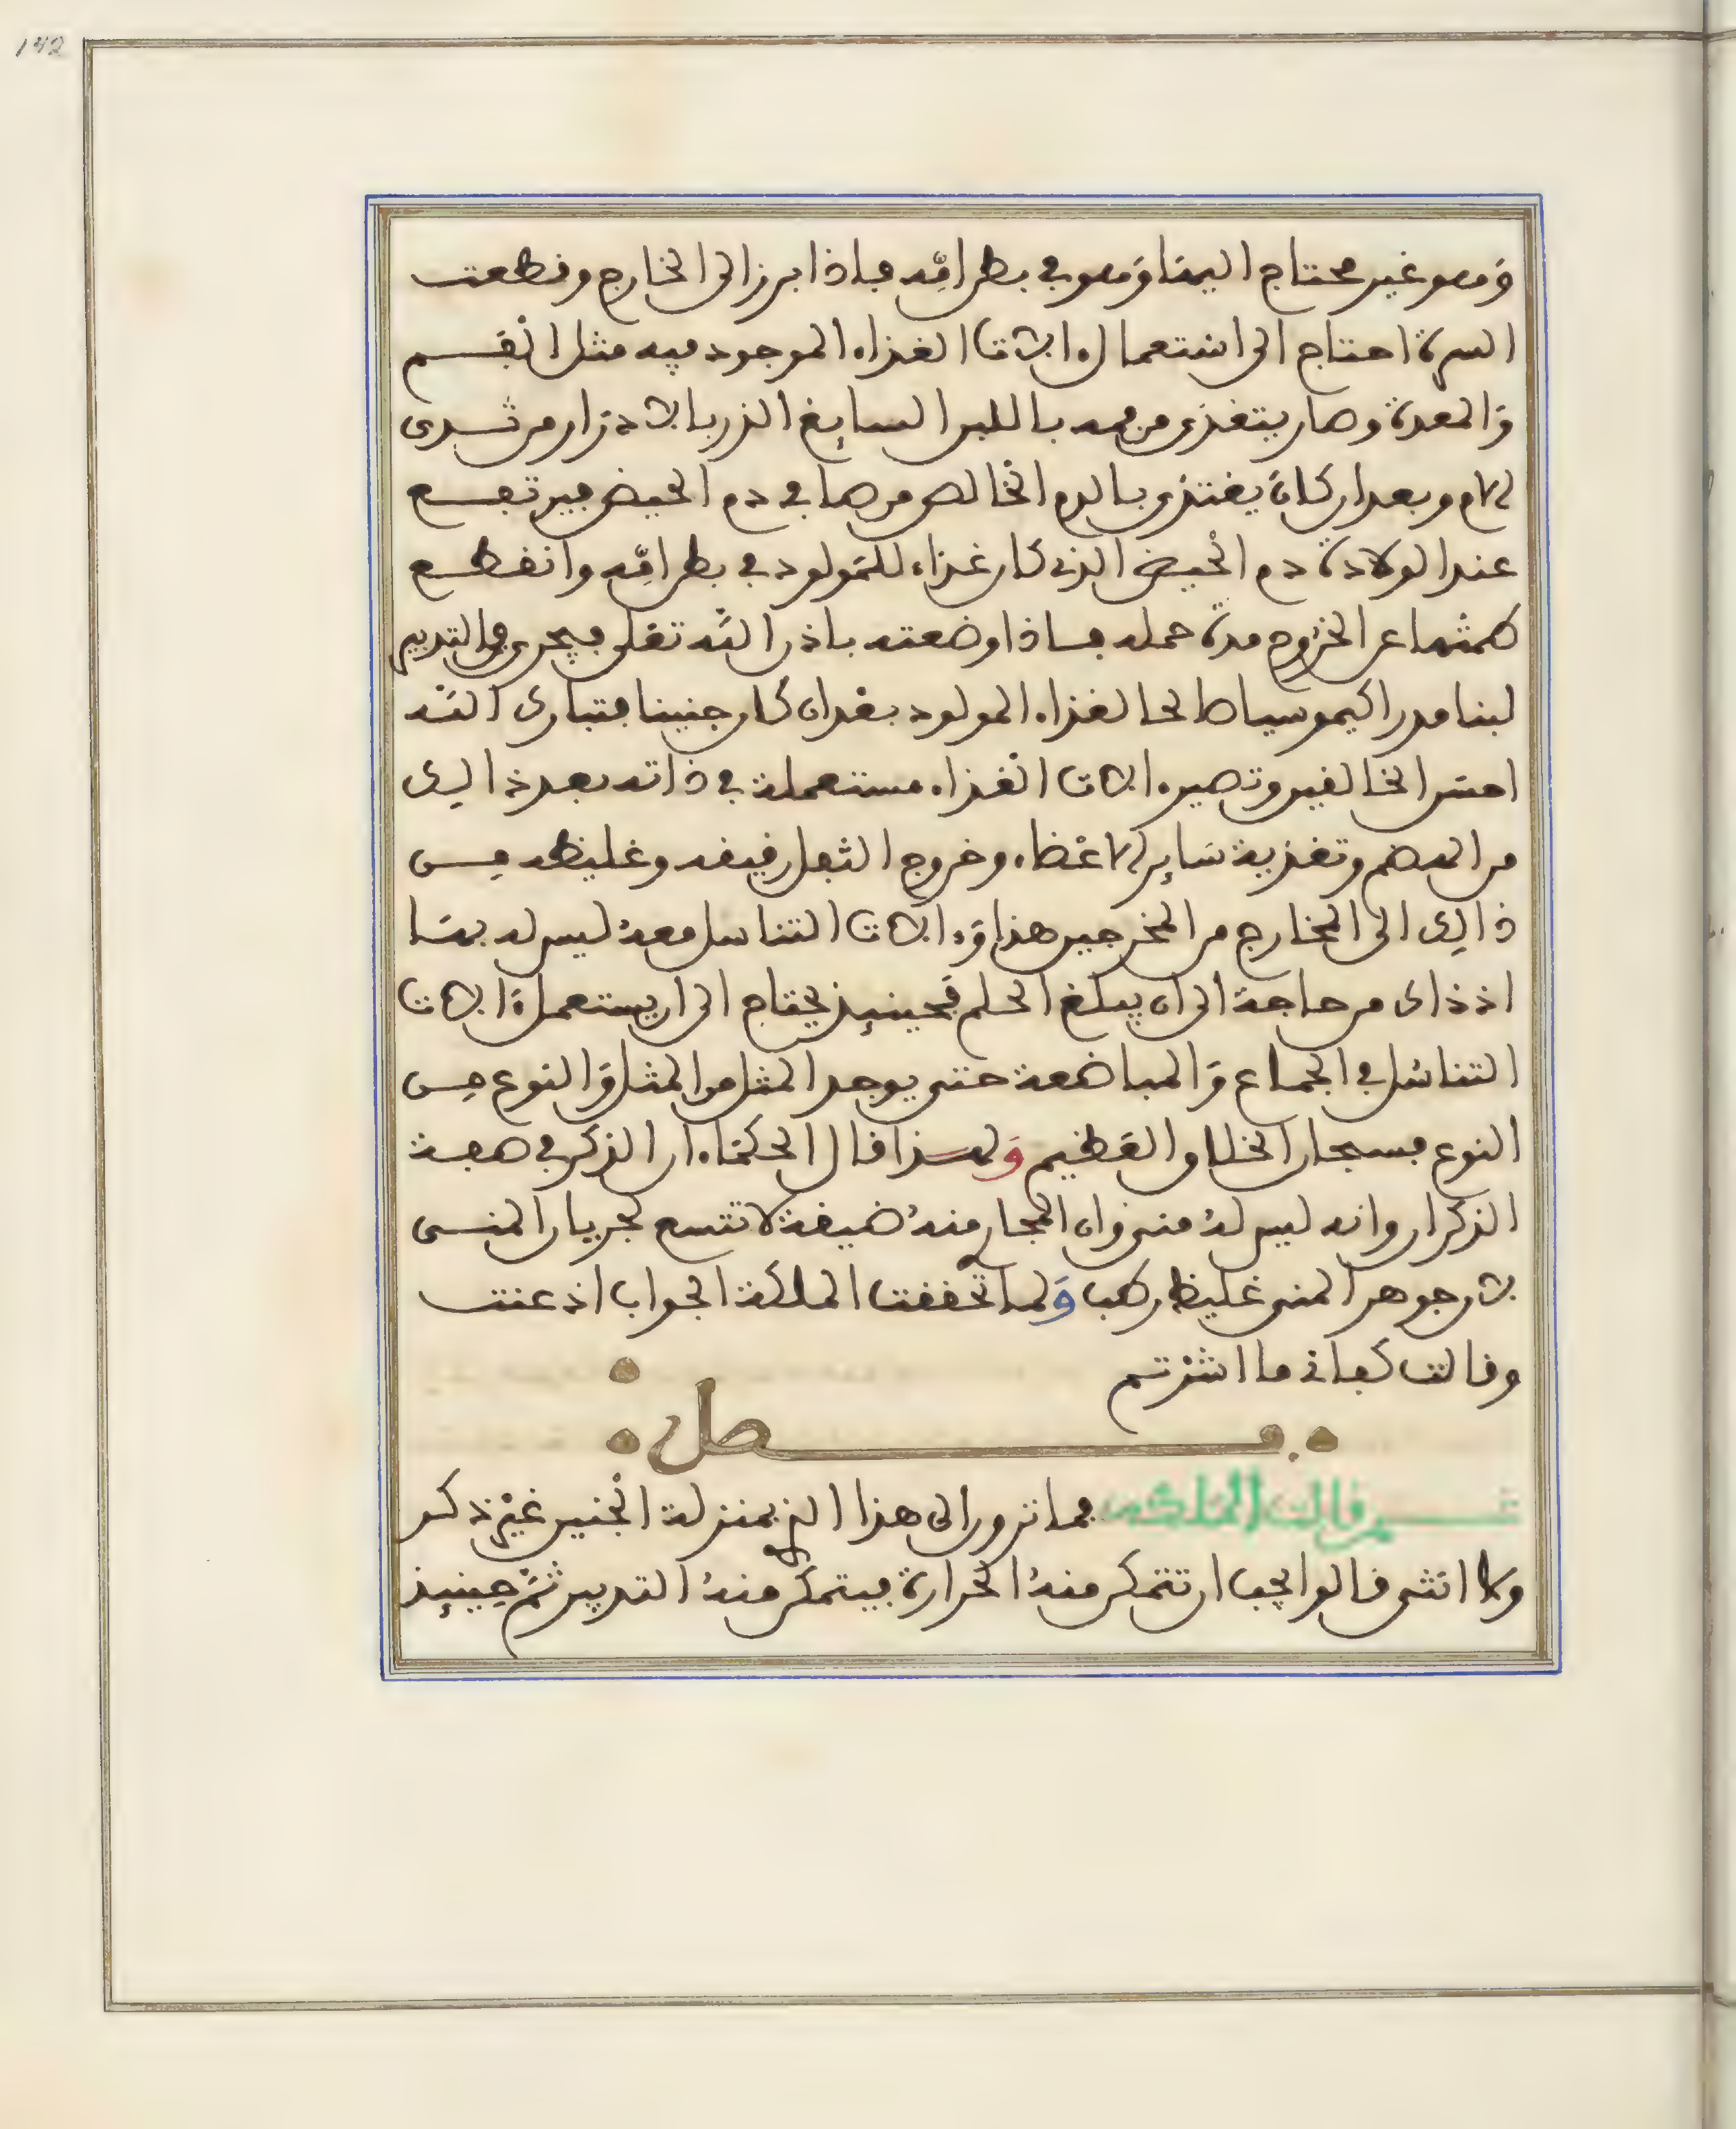 142
وهو غير محتاج اليها وهو في بطن امّه فاذا برز الى الخارج وقطعت
السرة احتاج الى استعمال ءالات الغذاء الموجود فيه مثل الفم
والمعدة وصار يتغذى من فمه باللبن السايغ الذي بالادرار من ثدى
الام وبعد ان كان يغتذى بالدم الخالص من صافي دم الحيض فيرتفع
عند الولادة دم الحيض الذي كان غذاء للمولود في بطن امّه وانقطع
طمثها عن الخروج مدة حمله فاذا وضعته باذن الله تعلى فيجرى في الثديين
لبنا مدرا كيموسيا صالحا لغذاء المولود بعد ان كان جنينا فتبارك الله
احسن الخالقين وتصير ءالات الغذاء مستعملة في ذاته بعد ذالك
من الهضم وتغذية ساير الاعضاء وخروج الثفل رقيقه وغليظه من
ذالك الى الخارج من المخرجين هذا وءالات التناسل معه ليس له بها
اذ ذاك من حاجة الى ان يبلغ الحلم فحينيذ يحتاج الى ان يستعمل ءالات
التناسل في الجماع والمباضعة حتى يوجد المثل من المثل والنوع من
النوع فسبحان الخلاق العظيم ولهذا قال الحكماء ان الذكر في صفة
الذكران وانه ليس له منى وان المجارى منه ضيقة لا تتسع لجريان المنى
لان جوهر المنى غليظ رطب ولما تحققت الملكة الجواب اذعنت
وقالت كفانى ما اشرتم
فصل
ثم قالت الملكة فما ترون الى هذا الذي بمنزلة الجنين غير ذكر
ولا انثى قالوا يجب ان تتمكن منه الحرارة فيتمكن منه التدبير ثم حينيذ